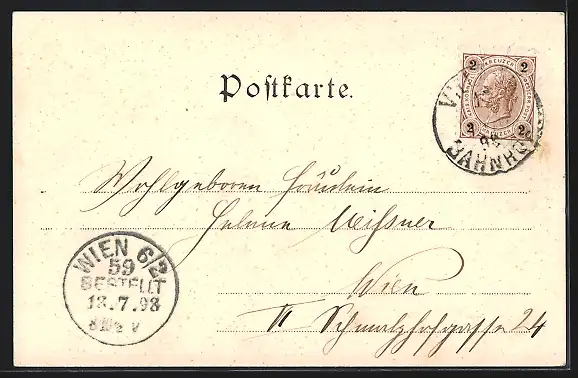 Postkarte.
2 KREUZER 2
2 2
98
BAHNHO
Wohlgeboren Fräulein
Helene Meissner
Wien
VI Schmalzhofgasse 24
WIEN 6/2
59
BESTELLT
18.7.98
V